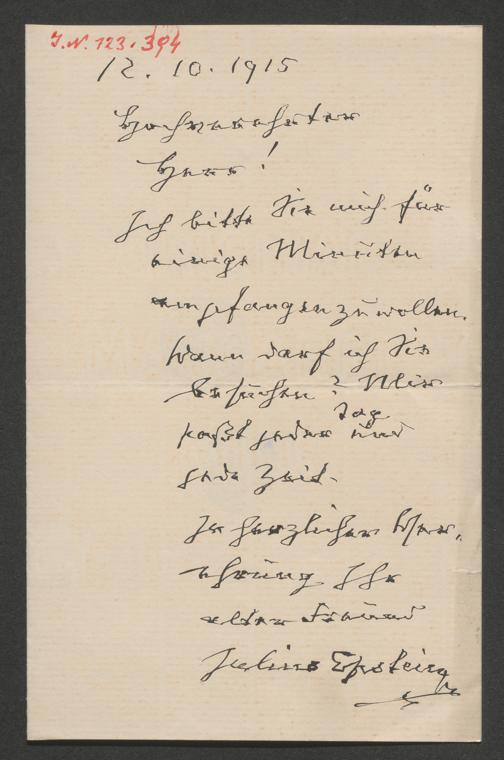 J.N. 123.394
12. 10. 1915
Hochverehrter
Herr!
Ich bitte Sie mich für
einige Minuten
empfangen zu wollen.
Wann darf ich Sie
besuchen? Mir
paßt jeder Tag und
jede Zeit.
In herzlicher Ver-
ehrung Ihr
alter Freund
Julius Epstein